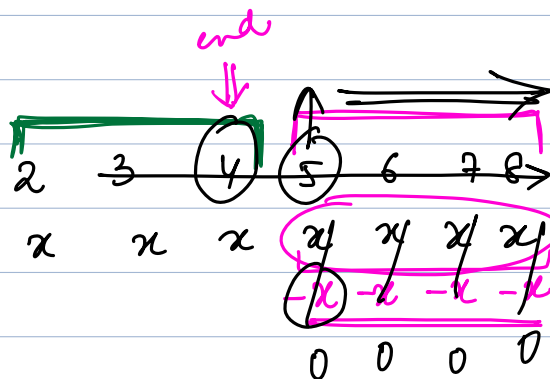 end
2 3 4 5 6 7 8
x x x x x x x
-x -x -x -x
0 0 0 0